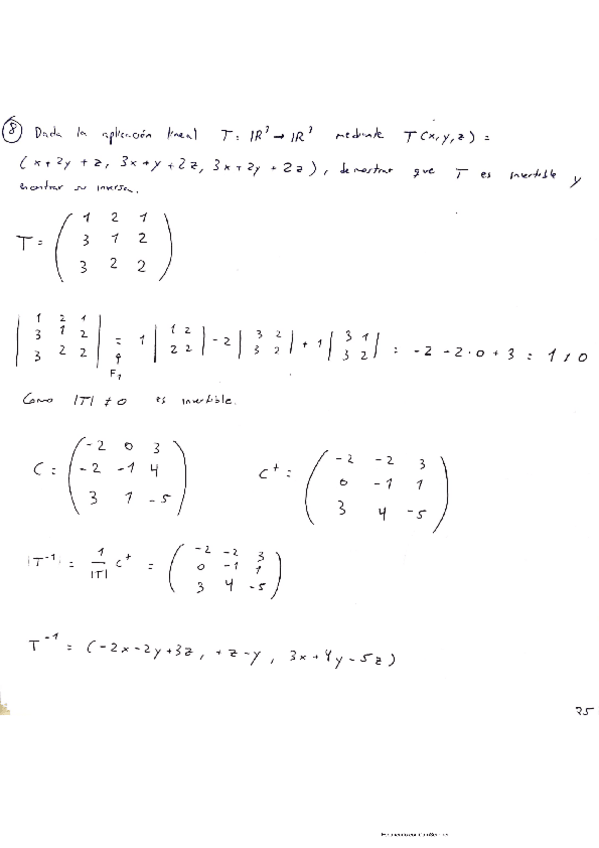 ⑧ Dada la aplicación lineal T: ℝ³ → ℝ³ mediante T(x,y,z) =
(x+2y+z, 3x+y+2z, 3x+2y+2z), demostrar que T es invertible y
encontrar su inversa.
T = ( 1 2 1
3 1 2
3 2 2 )
| 1 2 1
3 1 2
3 2 2 | = 1 | 1 2
2 2 | - 2 | 3 2
3 2 | + 1 | 3 1
3 2 | = -2 - 2·0 + 3 = 1 ≠ 0
↑
F₁
Como |T| ≠ 0 es invertible.
C = ( -2 0 3
-2 -1 4
3 1 -5 )
C⁺ = ( -2 -2 3
0 -1 1
3 4 -5 )
|T⁻¹| = 1/|T| C⁺ = ( -2 -2 3
0 -1 1
3 4 -5 )
T⁻¹ = (-2x-2y+3z, +z-y, 3x+4y-5z)